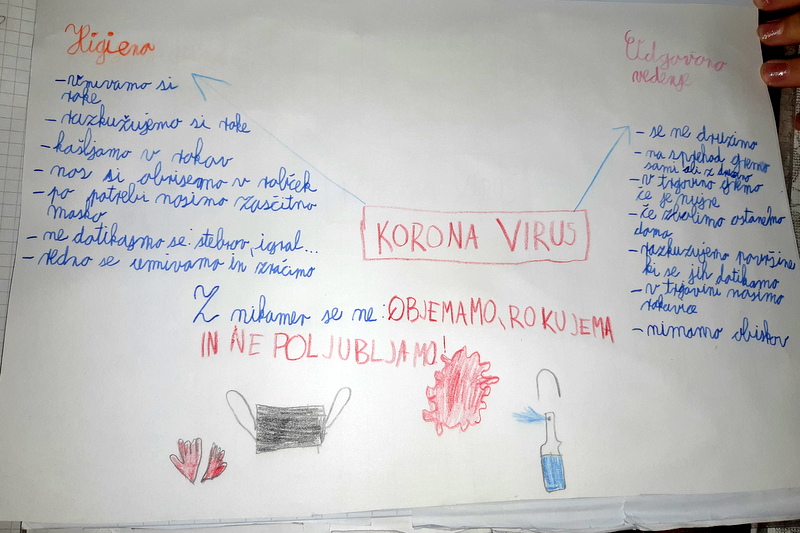 Higiena
- umivamo si
roke
- razkužujemo si roke
- kašljamo v rokav
- nos si obrisemo v robček
- po potrebi nosimo zasčitno
masko
- ne dotikajmo se: stebrov, igral...
- redno se umivamo in zračimo
Odgovorno
vedenje
- se ne družimo
- na sprehod gremo
sami ali z družino
- v trgovino gremo
če je nujno
- če zbolimo ostanemo
doma
- razkužujemo površine
ki se jih dotikamo
- v trgovini nosimo
rokavice
- nimamo obiskov
KORONA VIRUS
Z nikomer se ne: OBJEMAMO, ROKUJEMA
IN NE POLJUBLJAMO!